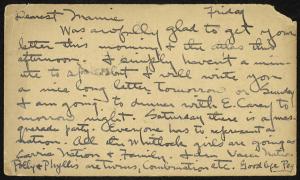 Friday
Dearest Mamie
Was awfully glad to get your
letter this morning & the this
afternoon. I simply haven't a min-
ute to a but I will write you
a nice long letter tomorrow or Sunday
I am going to dinner with E. Carey to
morrow night. Saturday there is a mas-
querade party. Everyone has to represent a
nation. All the Whitlock girls are going as
Carrie Nation & Family. Helen
Polly & Phyllis are twins, Combination etc. Goodbye Peg